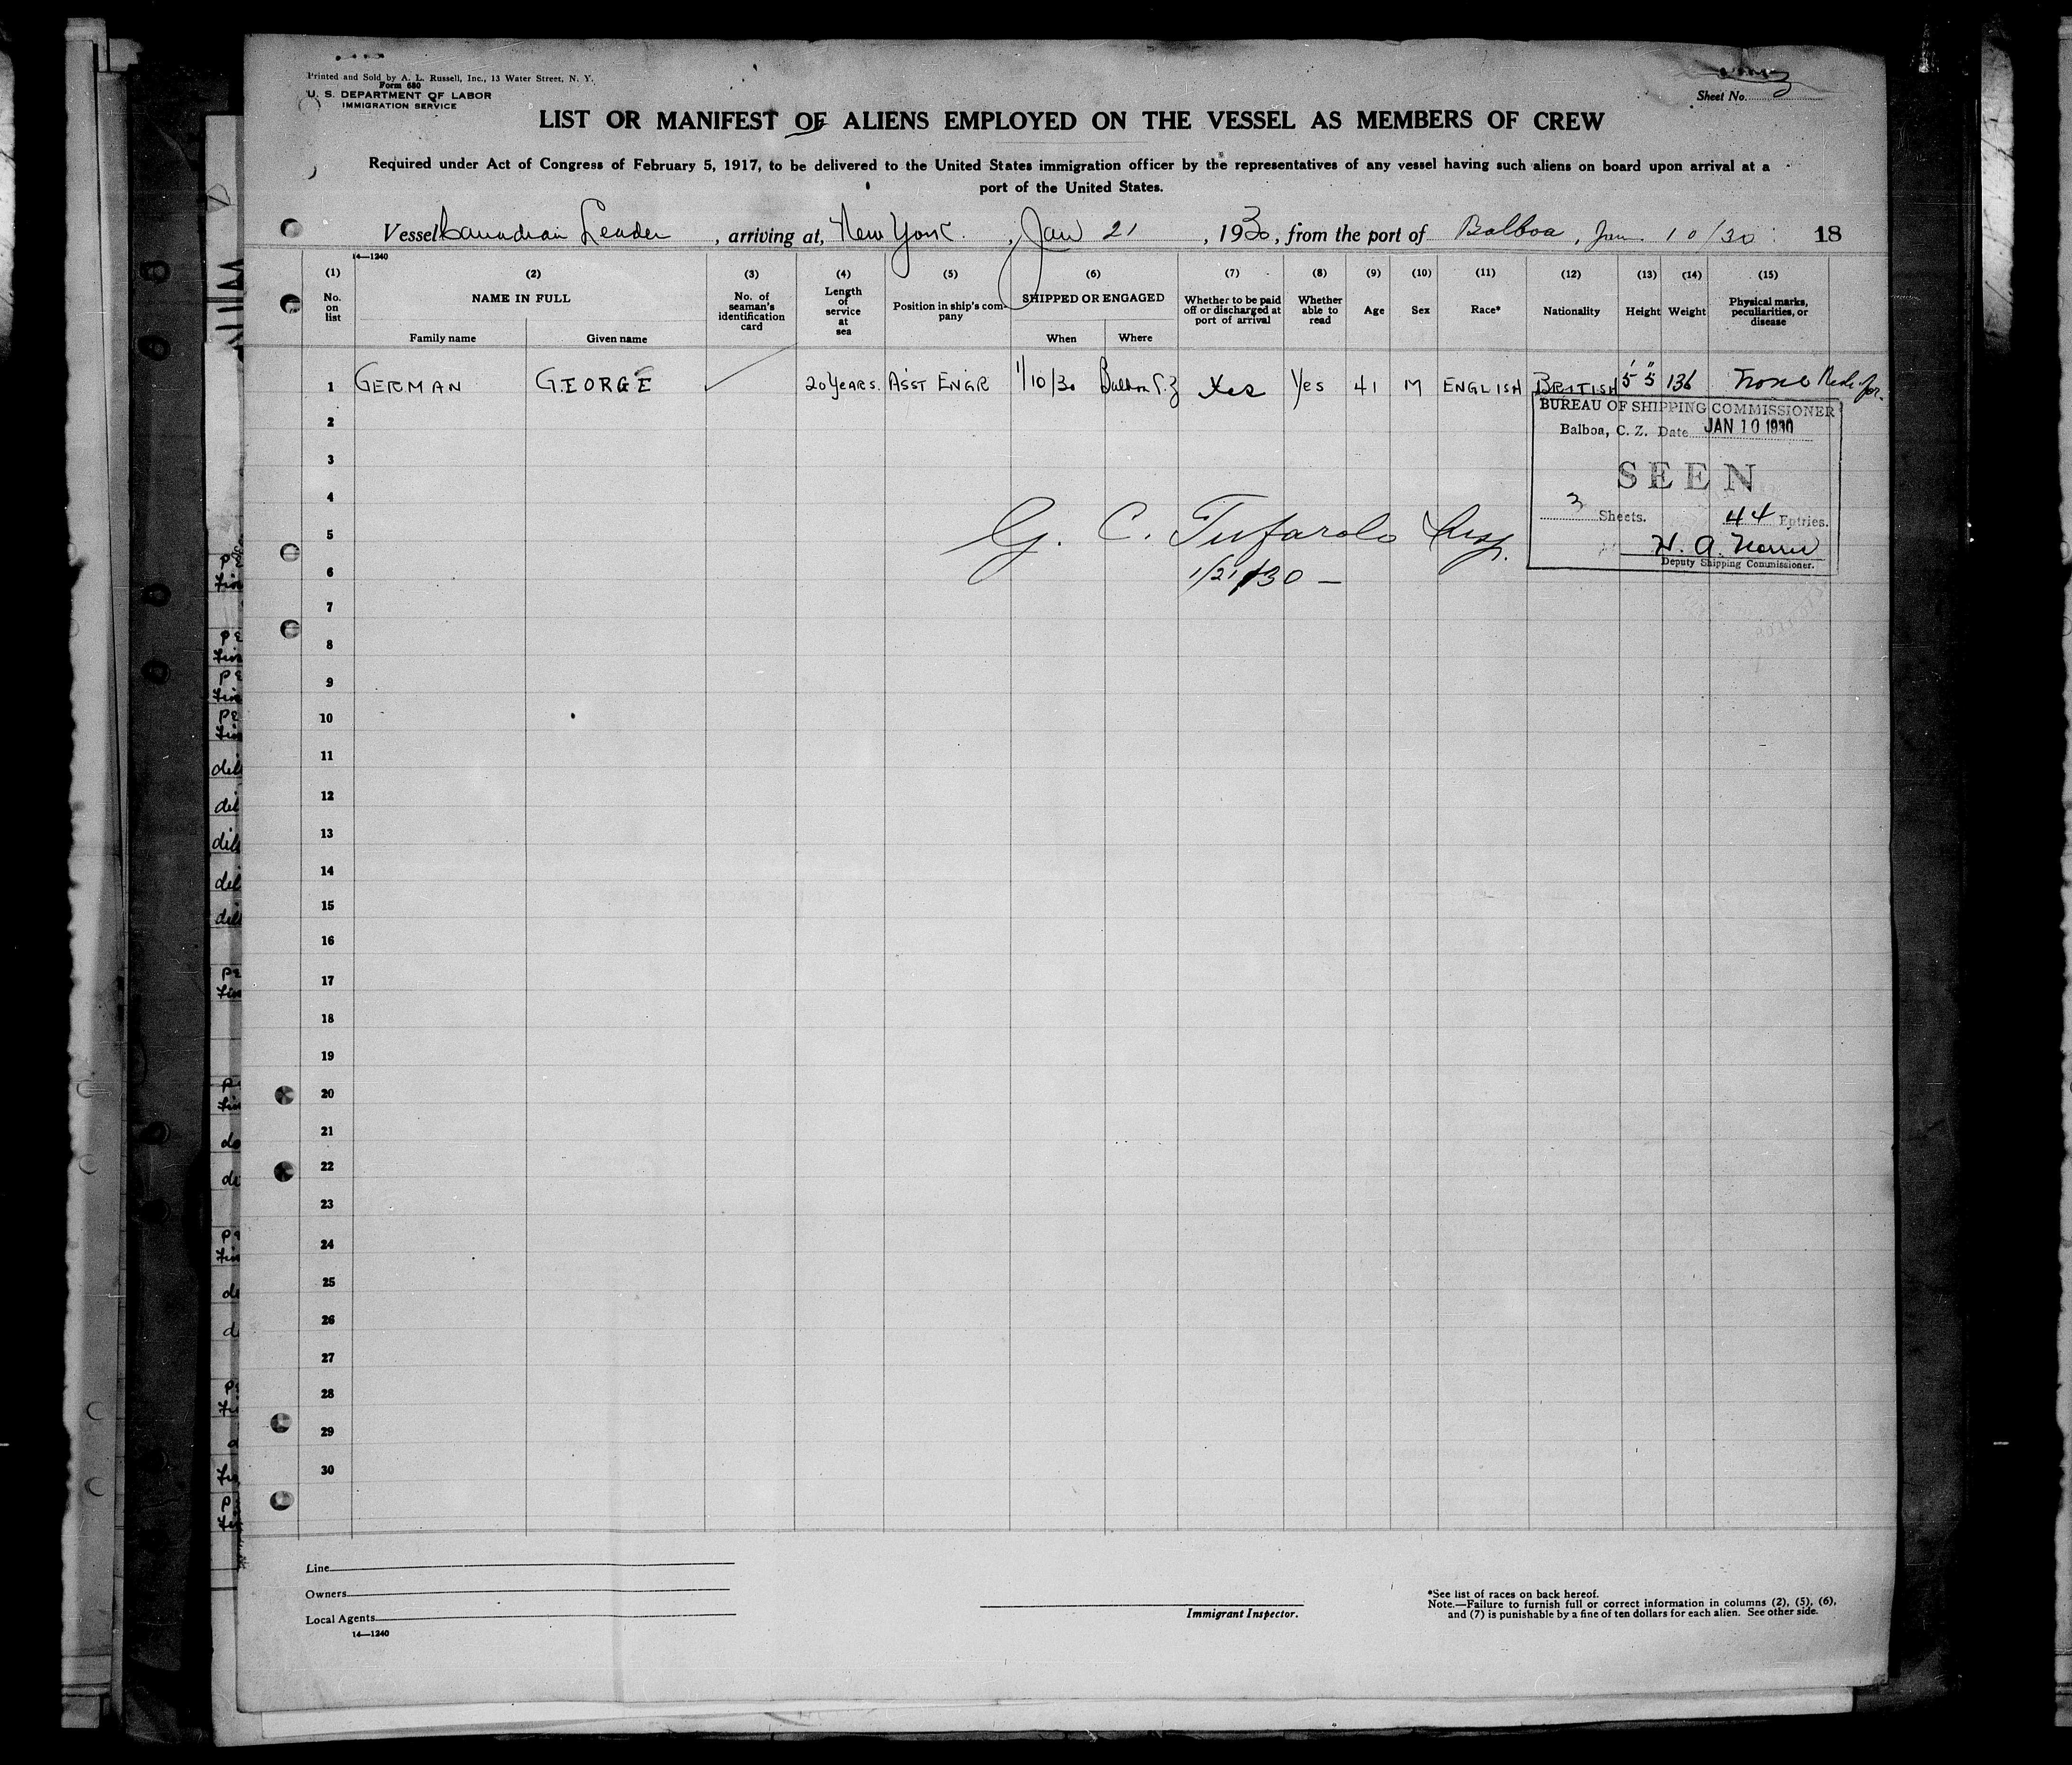 Printed and Sold by A. L. Russell, Inc., 13 Water Street, N. Y.
Form 680
U. S. DEPARTMENT OF LABOR
IMMIGRATION SERVICE
Sheet No. 3
LIST OR MANIFEST OF ALIENS EMPLOYED ON THE VESSEL AS MEMBERS OF CREW
Required under Act of Congress of February 5, 1917, to be delivered to the United States immigration officer by the representatives of any vessel having such aliens on board upon arrival at a
port of the United States.
Vessel Canadian Leader, arriving at, New York, Jan 21, 1930, from the port of Balboa, Jan 10/30 18
14—1240
(1) (2) (3) (4) (5) (6) (7) (8) (9) (10) (11) (12) (13) (14) (15)
No. on list
NAME IN FULL
Family name
Given name
No. of seaman's identification card
Length of service at sea
Position in ship's company
SHIPPED OR ENGAGED
When
Where
Whether to be paid off or discharged at port of arrival
Whether able to read
Age
Sex
Race*
Nationality
Height
Weight
Physical marks, peculiarities, or disease
1 GERMAN GEORGE 20 YEARS. ASST ENGR 1/10/30 Balboa C.Z Yes Yes 41 M ENGLISH BRITISH 5' 5" 136
BUREAU OF SHIPPING COMMISSIONER
Balboa, C. Z. Date JAN 10 1930
SEEN
3 Sheets. 44 Entries.
Deputy Shipping Commissioner.
G. C. Tufarolo Insp.
1/21/30 —
2
3
4
5
6
7
8
9
10
11
12
13
14
15
16
17
18
19
20
21
22
23
24
25
26
27
28
29
30
Line
Owners
Local Agents
14—1240
Immigrant Inspector.
*See list of races on back hereof.
Note.—Failure to furnish full or correct information in columns (2), (5), (6),
and (7) is punishable by a fine of ten dollars for each alien. See other side.